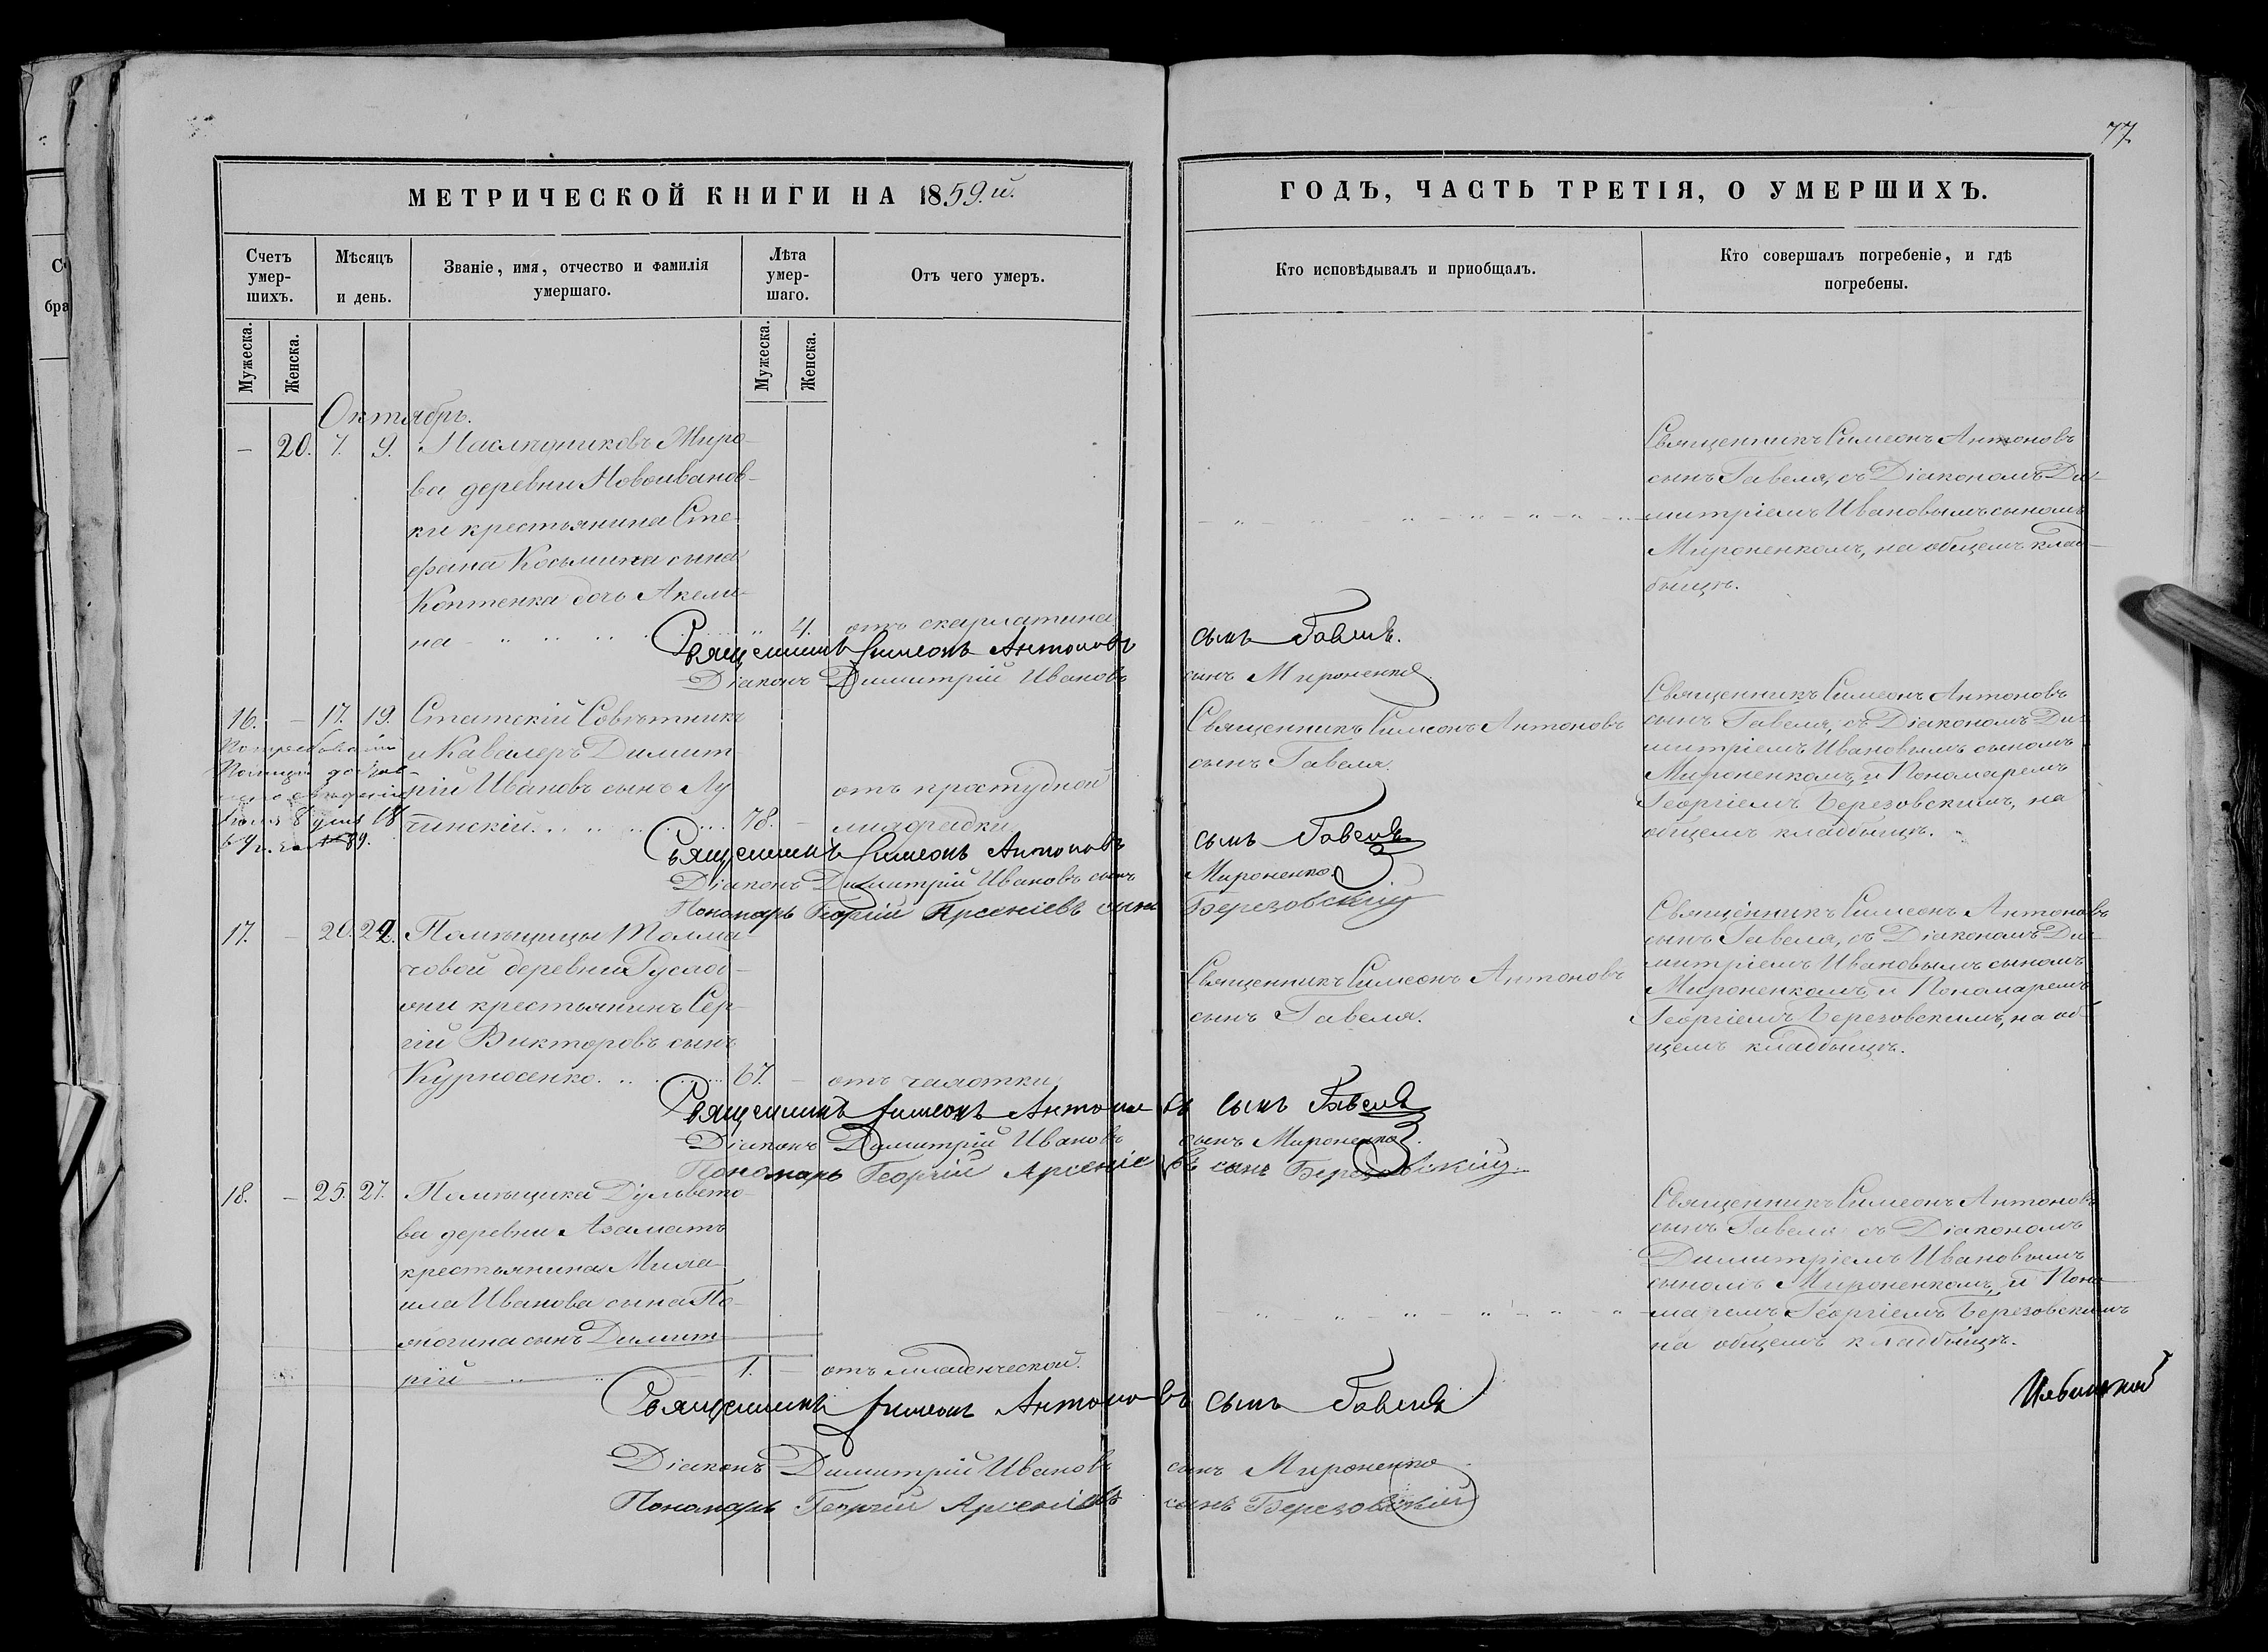 77
МЕТРИЧЕСКОЙ КНИГИ НА 1859.й.
ГОДЪ, ЧАСТЬ ТРЕТІЯ, О УМЕРШИХЪ.
Счетъ умер-шихъ.
Мѣсяцъ и день.
Званіе, имя, отчество и фамилія умершаго.
Лѣта умер-шаго.
Отъ чего умеръ.
Кто исповѣдывалъ и пріобщалъ.
Кто совершалъ погребеніе, и гдѣ погребены.
Мужеска.
Женска.
Мужеска.
Женска.
Октябрь.
— 20. 7. 9. Наслѣдниковъ Миро-
ва деревни Новоиванов-
ки крестьянина Сте-
фана Косьмина сына
Коптенка дочь Акели-
на 4. отъ скарлатина
Священникъ Симеонъ Антоновъ
сынъ Гавеля, съ Діакономъ Ди-
митріемъ Ивановымъ сыномъ
Мироненкомъ, на общемъ клад-
бищѣ.
Священникъ Симеонъ Антоновъ сынъ Гавеля.
Діаконъ Димитрій Ивановъ сынъ Мироненко.
16. — 17. 19. Статскій Совѣтникъ
и Кавалеръ Димит
рій Ивановъ сынъ Лу
чинскій 78. — отъ простудной
лихорадки
Священникъ Симеонъ Антоновъ
сынъ Гавеля.
Священникъ Симеонъ Антоновъ
сынъ Гавеля, съ Діакономъ Ди-
митріемъ Ивановымъ сыномъ
Мироненкомъ, и Пономаремъ
Георгіемъ Березовскимъ, на
общемъ кладбищѣ.
Священникъ Симеонъ Антоновъ сынъ Гавеля
Діаконъ Димитрій Ивановъ сынъ Мироненко.
Пономарь Георгій Арсеніевъ сынъ Березовскій
17. — 20. 22. Помѣщицы Толма-
човой деревни
крестьянинъ Сер-
гій Викторовъ сынъ
Курносенко 67. — отъ чахотки
Священникъ Симеонъ Антоновъ
сынъ Гавеля.
Священникъ Симеонъ Антоновъ
сынъ Гавеля, съ Діакономъ Ди-
митріемъ Ивановымъ сыномъ
Мироненкомъ, и Пономаремъ
Георгіемъ Березовскимъ, на об-
щемъ кладбищѣ.
Священникъ Симеонъ Антоновъ сынъ Гавеля
Діаконъ Димитрій Ивановъ сынъ Мироненко.
Пономарь Георгій Арсеніевъ сынъ Березовскій
18. — 25. 27. Помѣщика Дульвето-
ва деревни Азаматъ
крестьянина Миха
ила Иванова сына
сынъ Димит
рій 1. — отъ младенческой.
Священникъ Симеонъ Антоновъ
сынъ Гавеля съ Діакономъ
Димитріемъ Ивановымъ
сыномъ Мироненкомъ, и Поно-
маремъ Георгіемъ Березовскимъ
на общемъ кладбищѣ.
Священникъ Симеонъ Антоновъ сынъ Гавеля
Діаконъ Димитрій Ивановъ сынъ Мироненко
Пономарь Георгій Арсеніевъ сынъ Березовскій